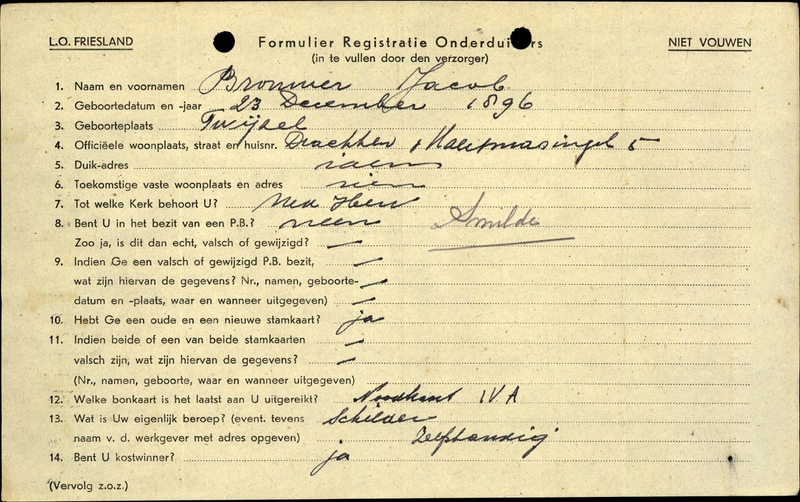 L.O. FRIESLAND
Formulier Registratie Onderduikers
NIET VOUWEN
(in te vullen door den verzorger)
1. Naam en voornamen Brouwer Jacob
2. Geboortedatum en -jaar 23 December 1896
3. Geboorteplaats Twijzel
4. Officiëele woonplaats, straat en huisnr. Drachten Houtmasingel 5
5. Duik-adres idem
6. Toekomstige vaste woonplaats en adres idem
7. Tot welke Kerk behoort U? Ned Herv
8. Bent U in het bezit van een P.B.? neen Smilde
Zoo ja, is dit dan echt, valsch of gewijzigd? —
9. Indien Ge een valsch of gewijzigd P.B. bezit, —
wat zijn hiervan de gegevens? Nr., namen, geboorte- —
datum en -plaats, waar en wanneer uitgegeven) —
10. Hebt Ge een oude en een nieuwe stamkaart? ja
11. Indien beide of een van beide stamkaarten —
valsch zijn, wat zijn hiervan de gegevens? —
(Nr., namen, geboorte, waar en wanneer uitgegeven)
12. Welke bonkaart is het laatst aan U uitgereikt? Noodkaart IV A
13. Wat is Uw eigenlijk beroep? (event. tevens Schilder
naam v. d. werkgever met adres opgeven) Zelfstandig
14. Bent U kostwinner? ja
(Vervolg z.o.z.)